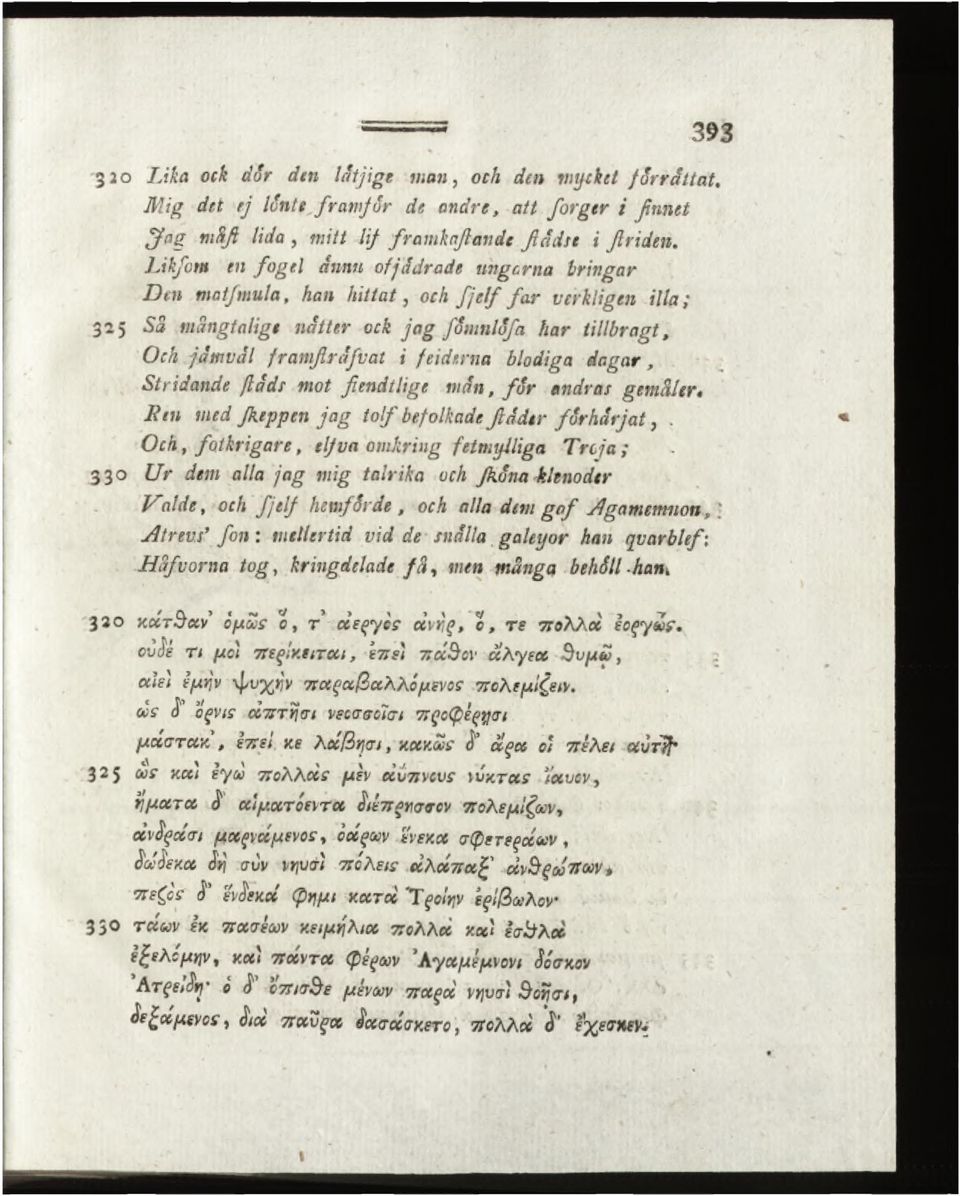 393
320 Lika ock dör den låtjige man, och den mycket förrättat.
Mig det ej lönte framför de andre, att ſorger i ſinnet
Jag måſt lida, mitt lif framkaſtande ſtädse i ſtriden.
Likſom en fogel ännu ofjädrade ungarna bringar
Den matſmula, han hittat, och ſjelf far verkligen illa;
325 Så mångtalige nätter ock jag ſömnlöſa har tillbragt,
Och jämväl framſträfvat i feiderna blodiga dagar,
Stridande ſtäds mot fiendtlige män, för andras gemåler.
Ren med ſkeppen jag tolf befolkade ſtäder förhärjat,
Och, fotkrigare, elfva omkring fetmylliga Troja;
330 Ur dem alla jag mig talrika och ſköna klenoder
Valde, och ſjelf hemförde, och alla dem gaf Agamemnon,
Atrevs' ſon: mellertid vid de snälla galeyor han qvarblef:
Håfvorna tog, kringdelade få, men många behöll han.
320 κάτθαν' ὁμῶς ὅ, τ' ἀεργὸς ἀνὴρ, ὅ, τε πολλὰ ἐοργώς.
οὐδέ τι μοὶ περίκειται, ἐπεὶ πάθον ἄλγεα θυμῷ,
αἰεὶ ἐμὴν ψυχὴν παραβαλλόμενος πολεμίζειν.
ὡς δ' ὄρνις ἀπτῆσι νεοσσοῖσι προφέρῃσι
μάστακ', ἐπεί κε λάβησι, κακῶς δ' ἄρα οἱ πέλει αὐτῇ·
325 ὣς καὶ ἐγὼ πολλὰς μὲν ἀΰπνους νύκτας ἴαυον,
ἤματα δ' αἱματόεντα διέπρησσον πολεμίζων,
ἀνδράσι μαρνάμενος, ὀάρων ἕνεκα σφετεράων,
δώδεκα δὴ σὺν νηυσὶ πόλεις ἀλάπαξ' ἀνθρώπων,
πεζὸς δ' ἕνδεκά φημι κατὰ Τροίην ἐρίβωλον·
330 τάων ἐκ πασέων κειμήλια πολλὰ καὶ ἐσθλὰ
ἐξελόμην, καὶ πάντα φέρων Ἀγαμέμνονι δόσκον
Ἀτρείδῃ· ὁ δ' ὄπισθε μένων παρὰ νηυσὶ θοῇσι,
δεξάμενος, διὰ παῦρα δασάσκετο, πολλὰ δ' ἔχεσκεν.